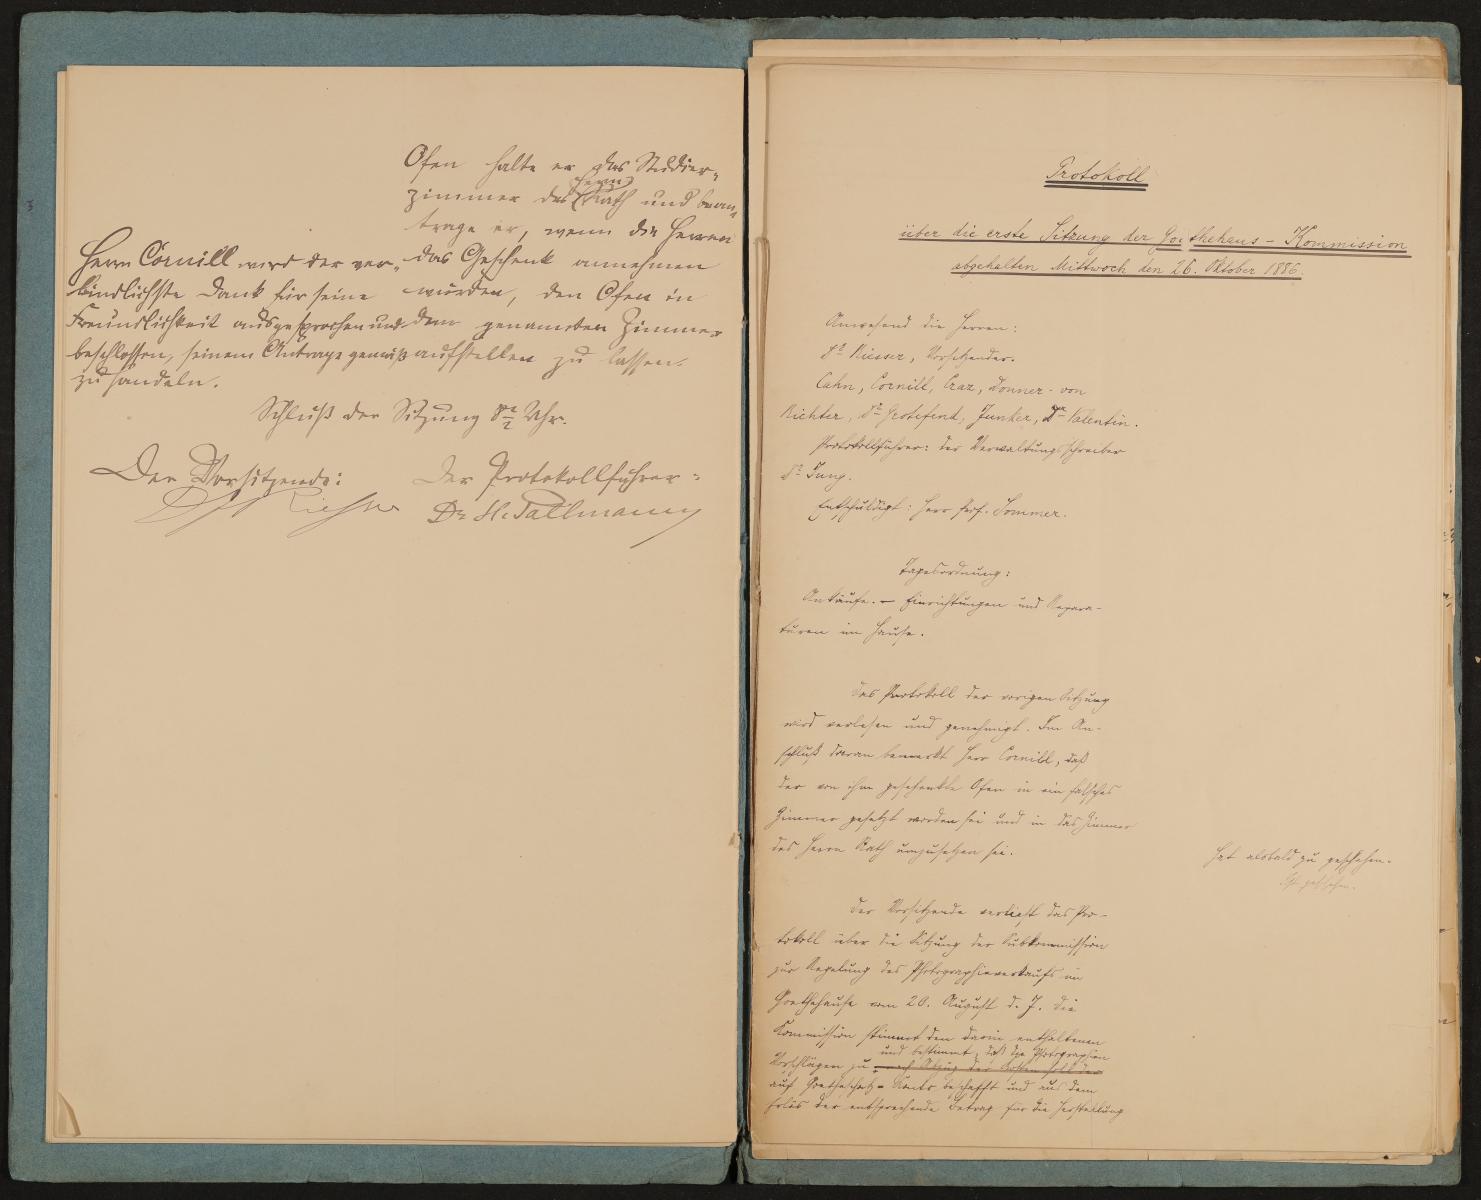 Ofen halte er das Studier-
zimmer des Herrn Rath und bean-
trage er, wenn die Herren
das Geschenk annehmen
würden, den Ofen in
dem genannten Zimmer
aufstellen zu lassen.
Herrn Cornill wird der ver-
bindlichste Dank für seine
Freundlichkeit ausgesprochen und
beschlossen, seinem Antrage gemäß
zu handeln.
Schluß der Sitzung 8 1/2 Uhr.
Der Vorsitzende:
Riesser
Der Protokollführer:
Dr. H. Pallmann
Protokoll
über die erste Sitzung der Goethehaus-Kommission
abgehalten Mittwoch den 26. Oktober 1886.
Anwesend die Herren:
Dr. Riesser, Vorsitzender.
Cahn, Cornill, Craz, Donner-von
Richter, Dr. Grotefend, Junker, Dr. Valentin.
Protokollführer: der Verwaltungsschreiber
Dr. Jung.
Entschuldigt: Herr Prof. Sommer.
Tagesordnung:
Ankäufe. – Einrichtungen und Repara-
turen im Hause.
Das Protokoll der vorigen Sitzung
wird verlesen und genehmigt. Im An-
schluß daran bemerkt Herr Cornill, daß
der von ihm geschenkte Ofen in ein falsches
Zimmer gesetzt worden sei und in das Zimmer
des Herrn Rath umzusetzen sei.
Hat alsbald zu geschehen.
Ist geschehen.
Der Vorsitzende verliest das Pro-
tokoll über die Sitzung der Subkommission
zur Regelung des Photographieverkaufs im
Goethehause vom 20. August d. J. Die
Kommission stimmt den darin enthaltenen
und bestimmt, daß die Photographien
Vorschlägen zu, nach Abzug der Kosten soll der
auf Goetheschatz-Konto beschafft und aus dem
Erlös der entsprechende Betrag für die Herstellung